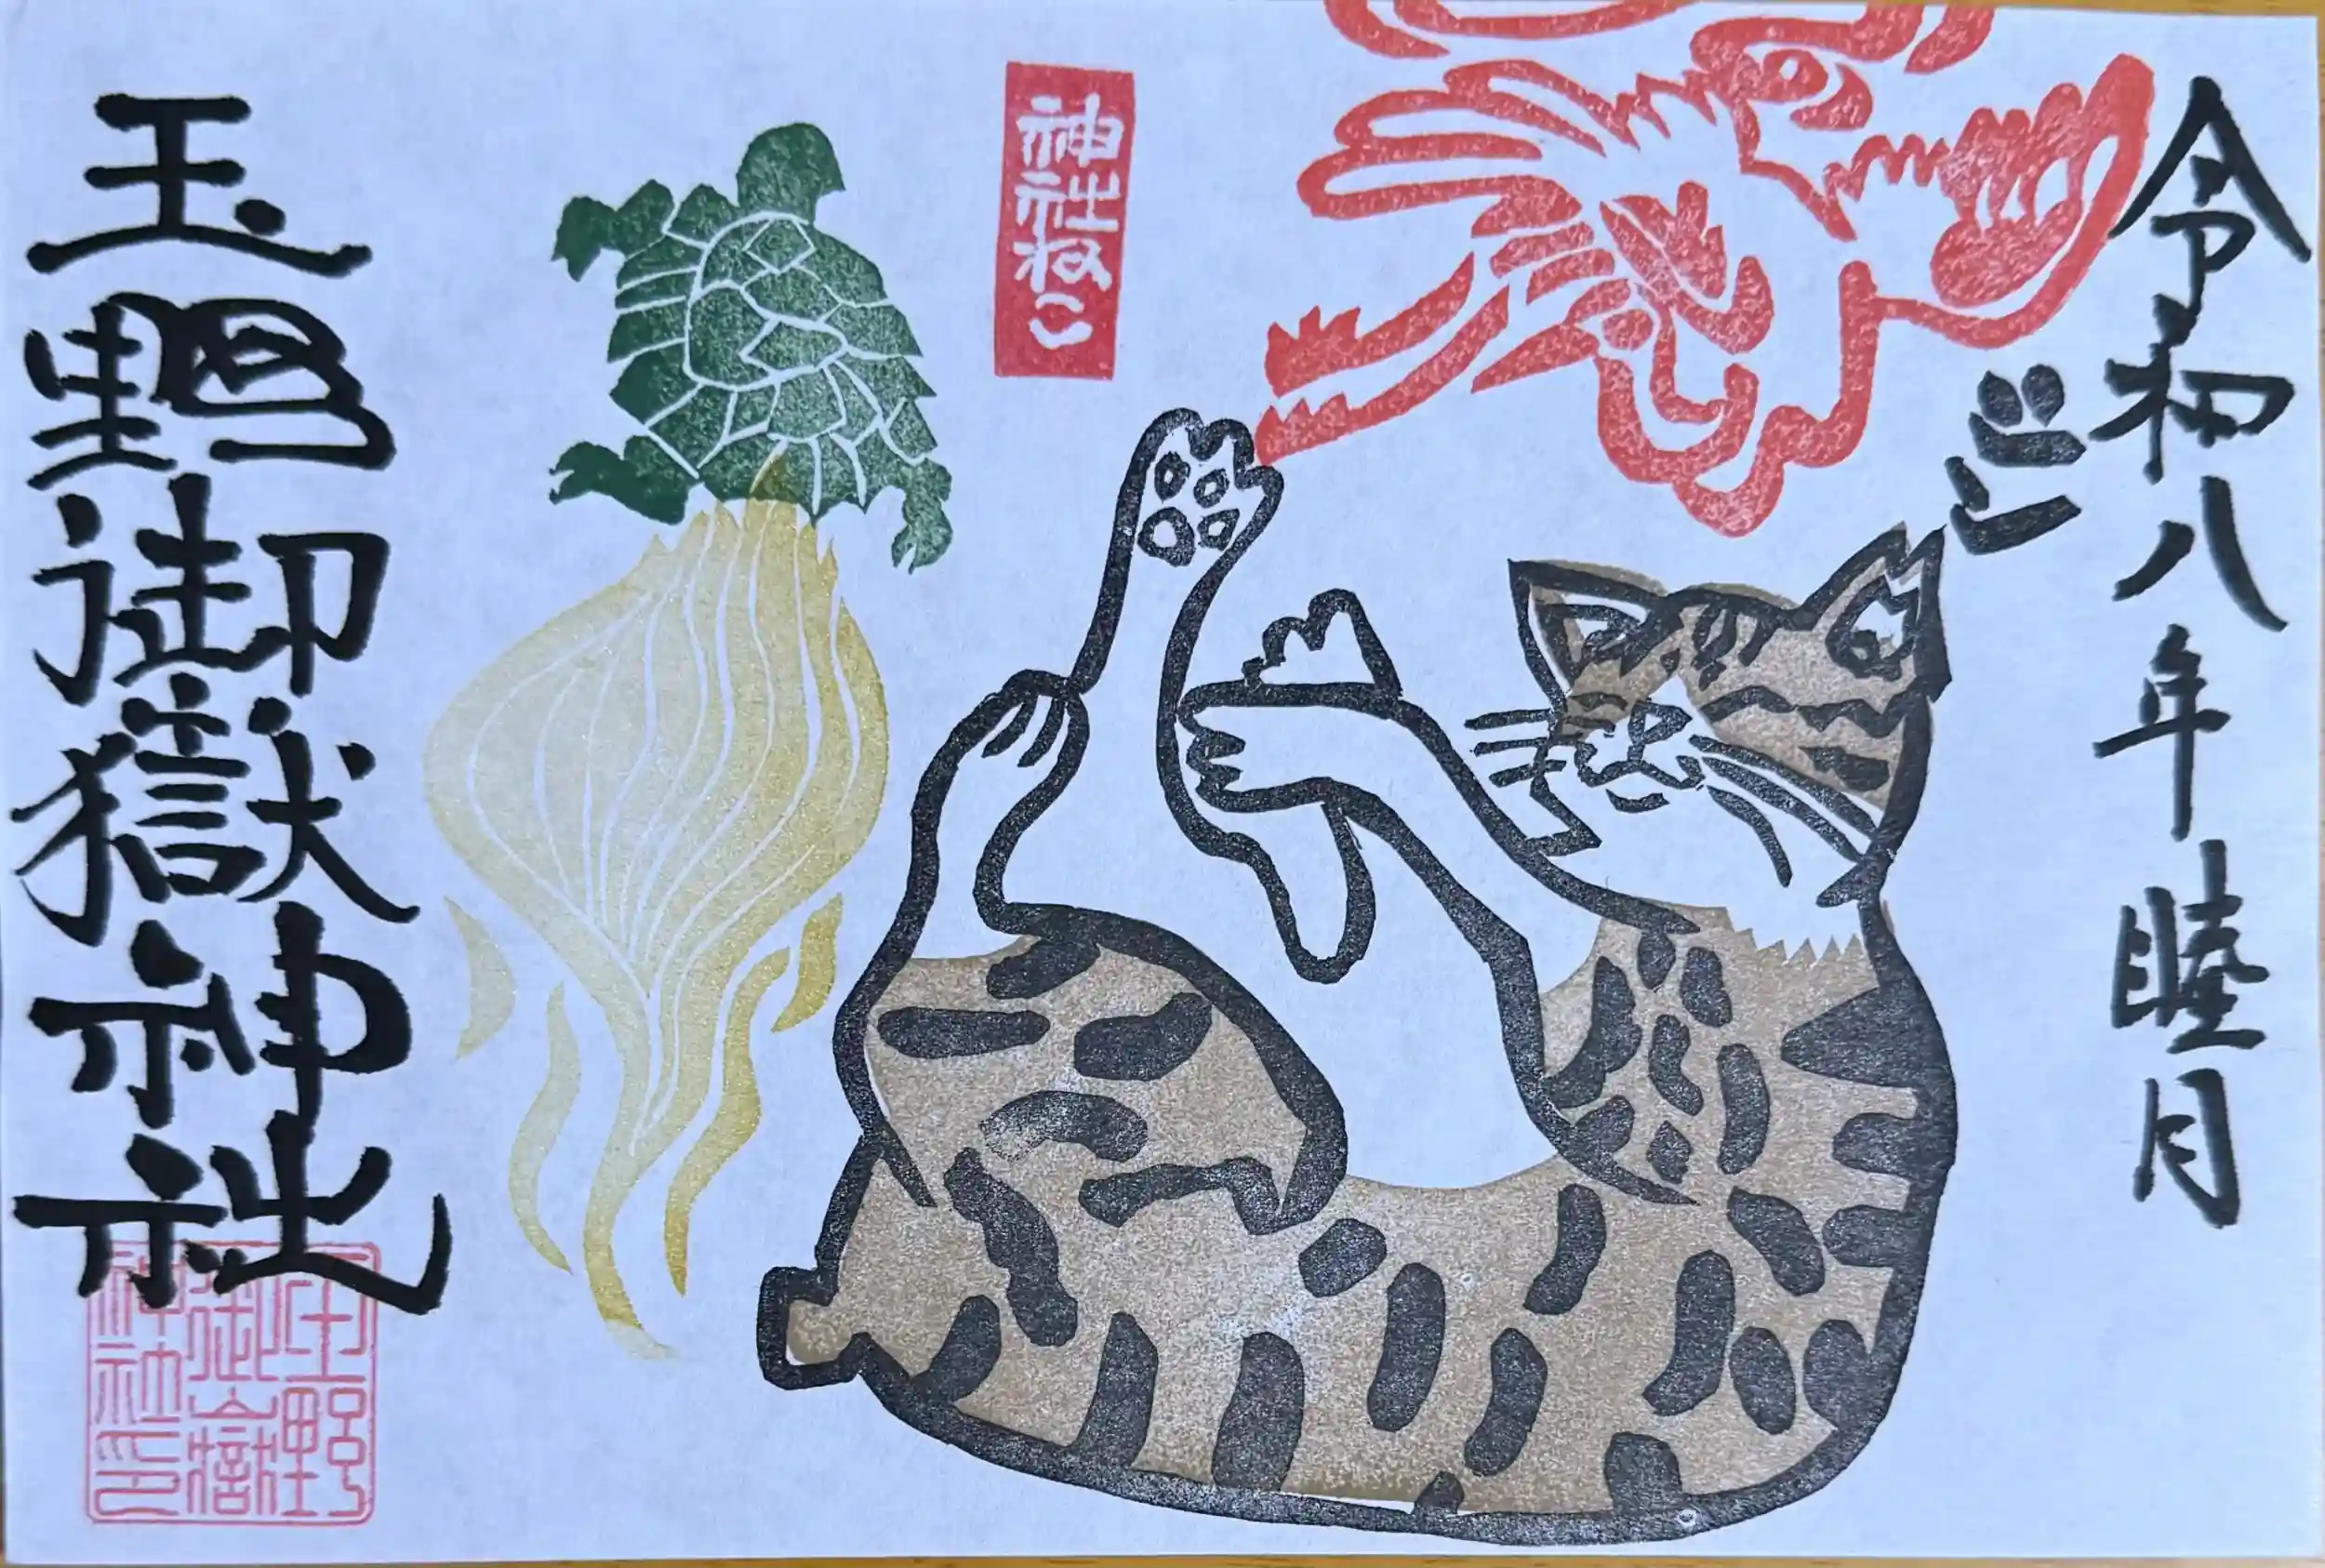 令和八年睦月
神社ねこ
玉野御嶽神社
玉野
御嶽
神社印